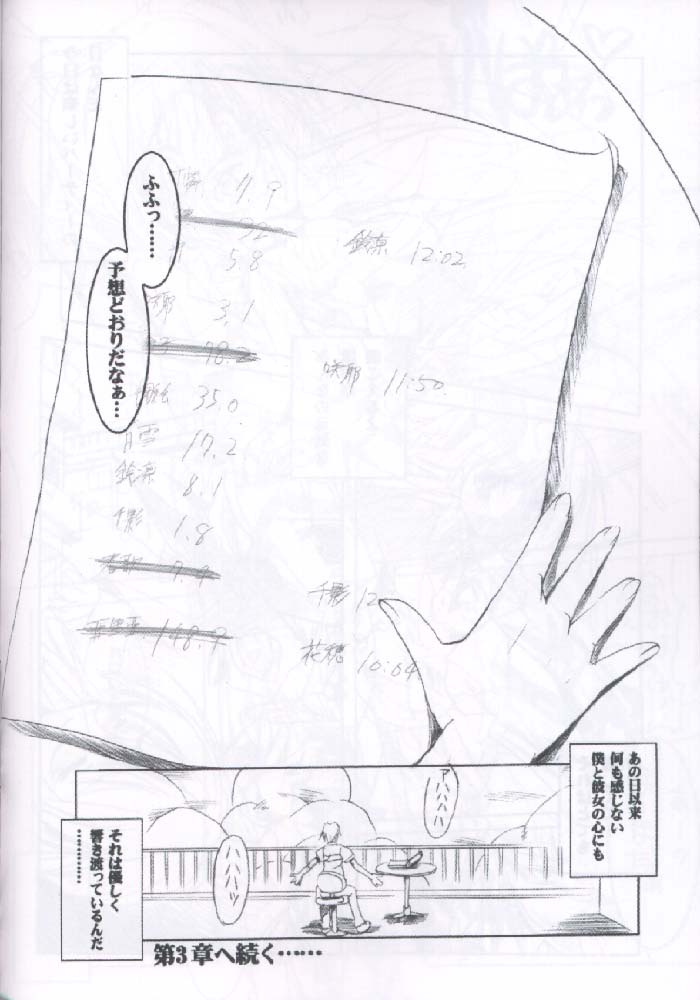 ふふっ……
予想どおりだなぁ…
7.9
鈴凛 12:02
5.8
3.1
咲耶 11:50
35.0
17.2
鈴凛 8.1
千影 1.8
千影 12
花穂 10:04
148.9
あの日以来
何も感じない
僕と彼女の心にも
アハハハハ
ハハハハッ
それは優しく
響き渡っているんだ
…………
第3章へ続く……